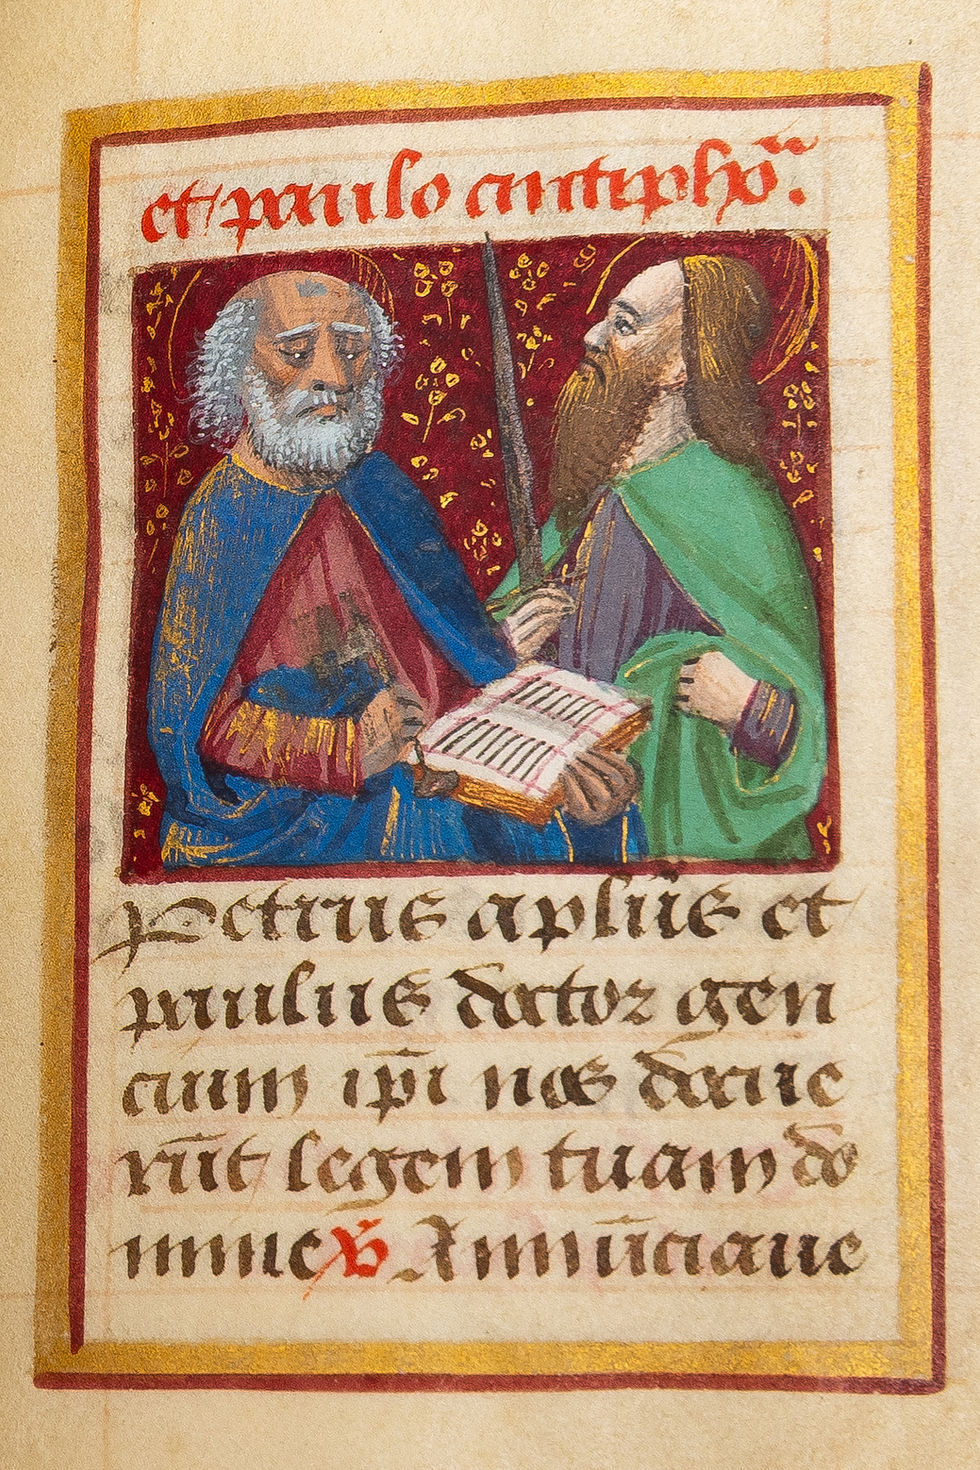 et paulo antipho&#771;ᵃ.
Petrus aplu&#771;s et
paulus doctor gen
cium ip&#771;i nos docue
ru&#771;t legem tuam do
mine ℣ Annu&#771;ciaue